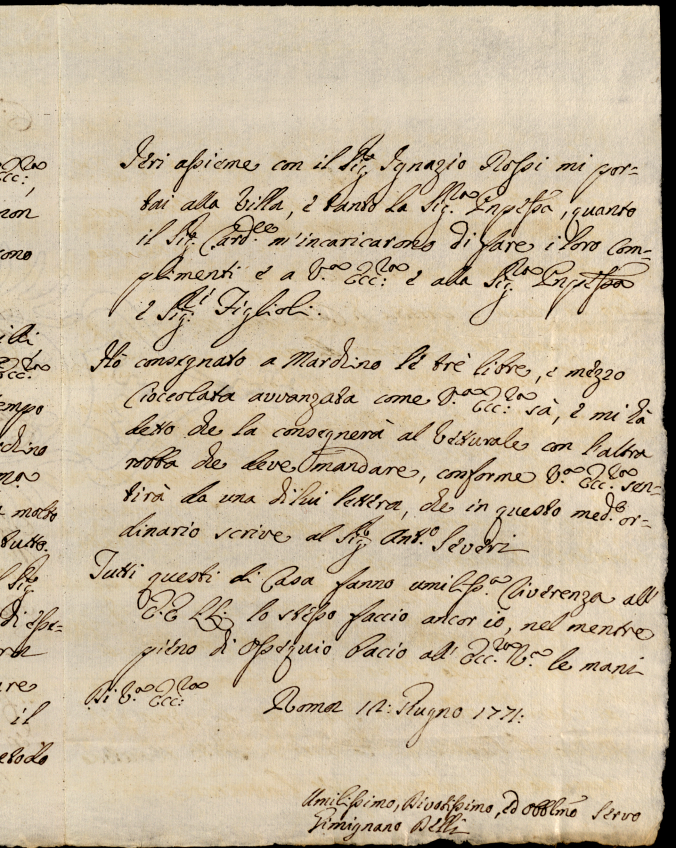 Ieri assieme con il Sig.re Ignazio Rossi mi por-
tai alla Villa, e tanto la Sig.ra Prnpessa, quanto
il Sig.r Card.le m'incaricarono di fare i loro Com-
plimenti e a V.ra Ecc:za e alla Sig.ra Prnpessa
e Sig.ri Figlioli.
Hò consegnato a Marchino le trè libre, e mezzo
Cioccolata avvanzata come V.ra Ecc:za sà, e mi hà
detto che la consegnerà al Vetturale con l'altra
robba che deve mandare, conforme V.ra Ecc:za sen-
tirà da una di lui lettera, che in questo med.o or-
dinario scrive al Sig.r Ant.o Severi
Tutti questi di Casa fanno umiliss.a riverenza all'
E.E. LL: lo stesso faccio ancor io, nel mentre
pieno di Ossequio bacio all' Ecc:za V.ra le mani
Di V.ra Ecc:za
Roma Giugno 1771:
Umilissimo, Divotissimo, ed Obblmo Servo
Gimignano Belli
non
tempo
molto
tutto.
Sig.re
il